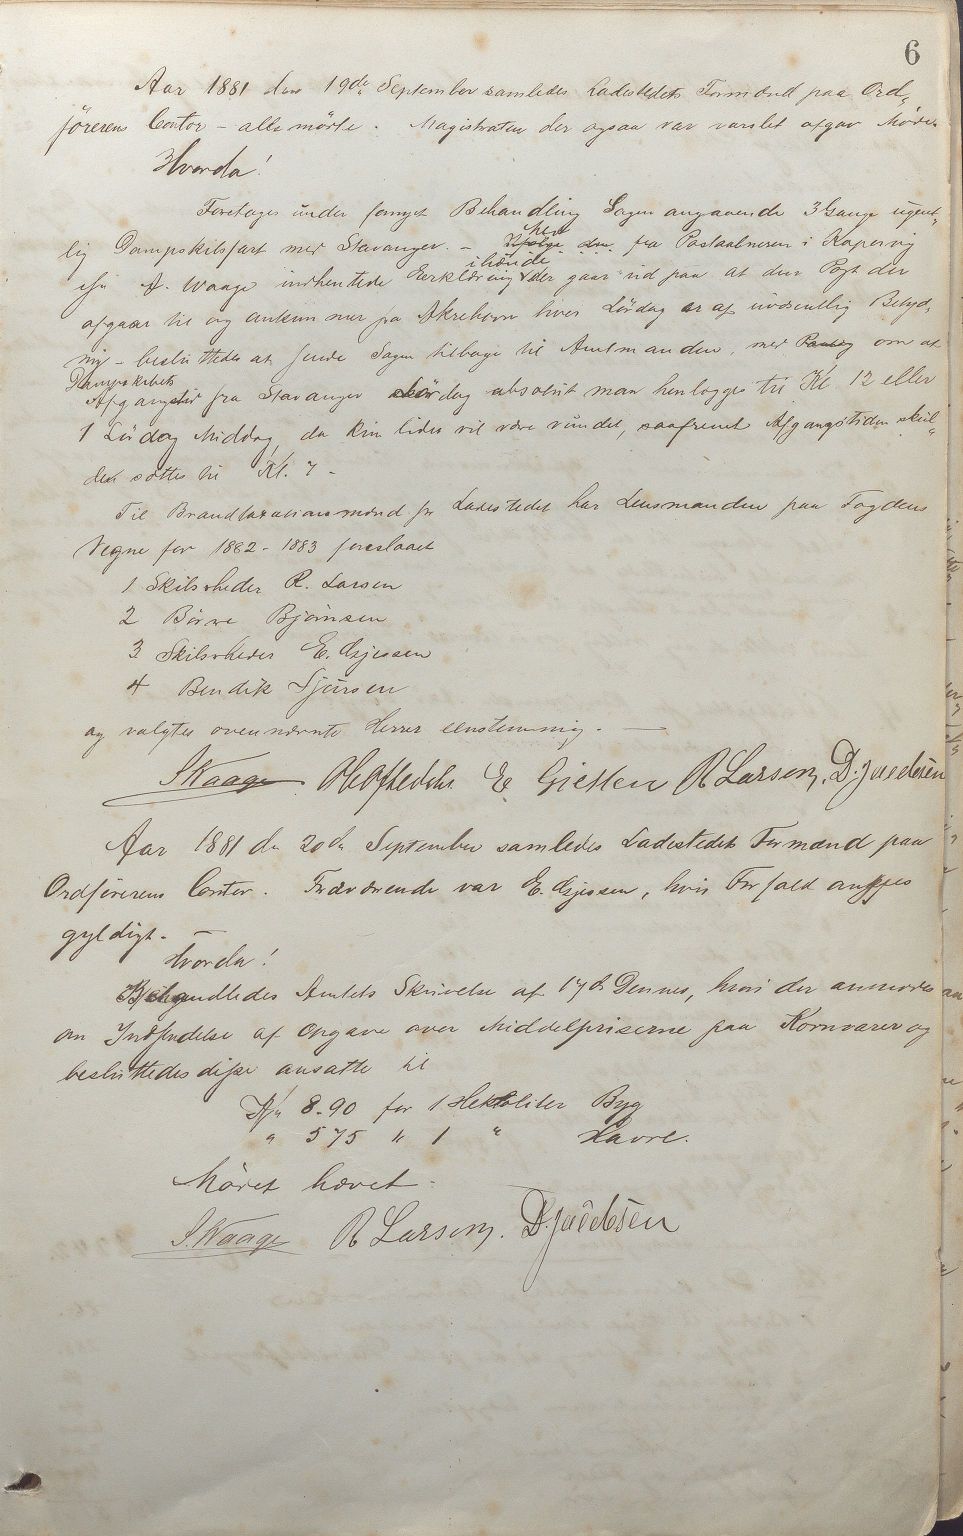 6
Aar 1881 den 19de September samledes Ladestedets Formænd paa Ord-
förerens Contor - alle mödte. Magistraten der ogsaa var varslet afgav Möde.
Hvorda!
Foretoges under fornyet Behandling Sagen angaaende 3 Gange ugent-
lig Dampskibsfart med Stavanger. - fra Postaabneren i Kopervig
A. Waage indhentede Erklæring ihænde der gaar ud paa at den Post der
afgaar til og ankommer fra Akrehavn hver Lördag er af uvæsentlig Betyd-
ning - besluttedes at sende Sagen tilbage til Amtmanden, med om at
Dampskibets
Afgangstid fra Stavanger Lördag absolut maa henlægges til Kl. 12 eller
1 Lördag Middag, da kun lidet vil være vundet, saafremt Afgangstiden skul-
de sættes til Kl. 7 -
Til Brandtaxationsmænd for Ladestedet har Lensmanden paa Fogdens
Vegne for 1882 - 1883 foreslaaet
1 Skibsrheder R. Larsen
2 Börre Björnsen
3 Skibsrheder E. Gjessen
4 Bendik Sjursen
og valgtes ovennævnte Herrer eenstemmig. -
S Waage E. Giessen R Larsen. D. Jacobsen
Aar 1881 den 20de September samledes Ladestedets Formænd paa
Ordförerens Contor. Fraværende var E. Gjessen, hvis Forfald ansees
gyldigt. -
Hvorda!
Behandledes Amtets Skrivelse af 17de Dennes, hvori der anmodes
om Indsendelse af Opgave over Middelpriserne paa Kornvarer og
besluttedes disse ansatte til
Kr 8-90 for 1 Hektoliter Byg
" 575 " 1 " Havre.
Mödet hævet.
S. Waage R Larsen. D. Jacobsen